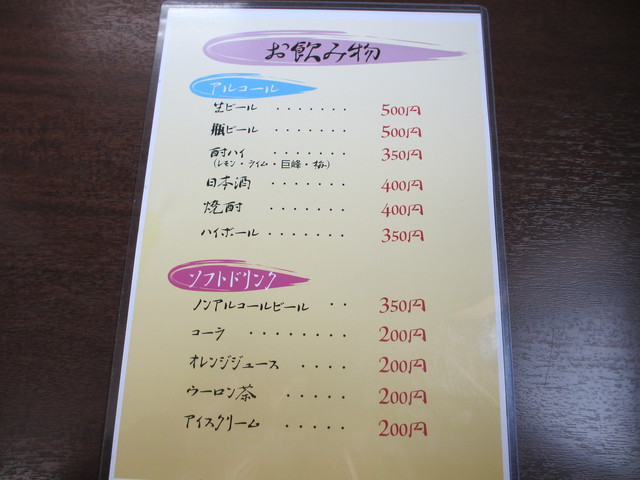 お飲み物
アルコール
生ビール ・・・・・・・ 500円
瓶ビール ・・・・・・・ 500円
酎ハイ ・・・・・・・ 350円
(レモン・ライム・巨峰・梅)
日本酒 ・・・・・・ 400円
焼酎 ・・・・・・・ 400円
ハイボール ・・・・・・・ 350円
ソフトドリンク
ノンアルコールビール ・・ 350円
コーラ ・・・・・・・・ 200円
オレンジジュース ・・・・ 200円
ウーロン茶 ・・・・・ 200円
アイスクリーム ・・・・・ 200円